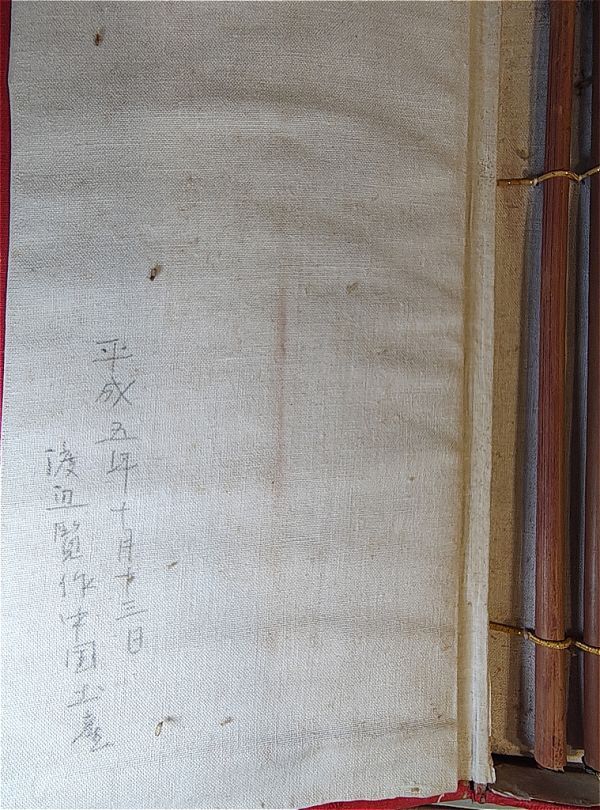 平成五年十月十三日
渡辺覧作中国土産